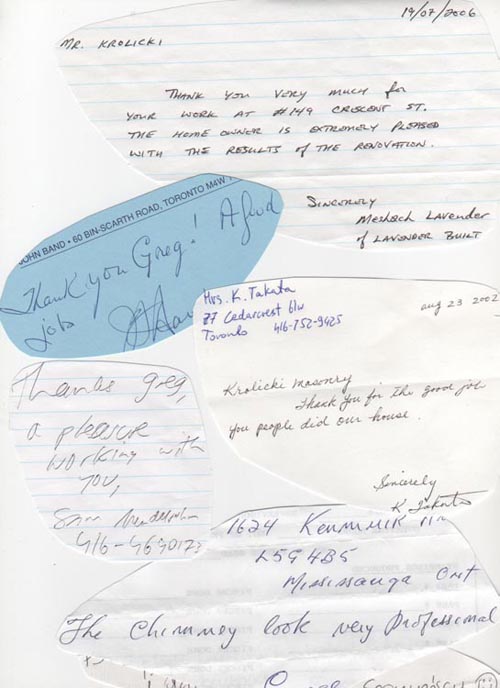 19/07/2006
MR. KROLICKI
THANK YOU VERY MUCH for
YOUR WORK AT #149 CRESCENT ST.
THE HOME OWNER IS EXTREMELY PLEASED
WITH THE RESULTS of THE RENOVATION.
SINCERELY
Meshach Lavender
of LAVENDER BUILT
JOHN BAND • 60 BIN-SCARTH ROAD, TORONTO M4W
Thank you Greg! A good
job
Mrs. K. Takata
27 Cedarcrest blv
Toronto 416-752-9425
aug 23 2002
Krolicki Masonry
Thank you for the good job
you people did our house.
Sincerely
K Takata
Thanks Greg,
a pleasure
working with
you,
Sam
416-4690173
1624
L5G4B5
Mississauga Ont
The Chimney look very professional